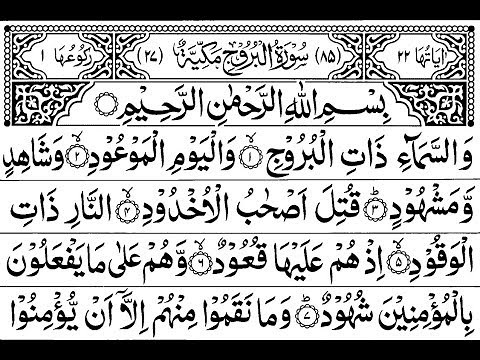 اٰيَاتُهَا ٢٢ (٨٥) سُوْرَةُ الْبُرُوْجِ مَكِّيَّةٌ (٢٧) رُكُوْعُهَا ١
بِسْمِ اللّٰهِ الرَّحْمٰنِ الرَّحِيْمِ
وَالسَّمَآءِ ذَاتِ الْبُرُوْجِ ۙ﴿١﴾ وَالْيَوْمِ الْمَوْعُوْدِ ۙ﴿٢﴾ وَشَاهِدٍ
وَّمَشْهُوْدٍ ؕ﴿٣﴾ قُتِلَ اَصْحٰبُ الْاُخْدُوْدِ ۙ﴿٤﴾ النَّارِ ذَاتِ
الْوَقُوْدِ ۙ﴿٥﴾ اِذْ هُمْ عَلَيْهَا قُعُوْدٌ ۙ﴿٦﴾ وَّهُمْ عَلٰى مَا يَفْعَلُوْنَ
بِالْمُؤْمِنِيْنَ شُهُوْدٌ ؕ﴿٧﴾ وَمَا نَقَمُوْا مِنْهُمْ اِلَّاۤ اَنْ يُّؤْمِنُوْا